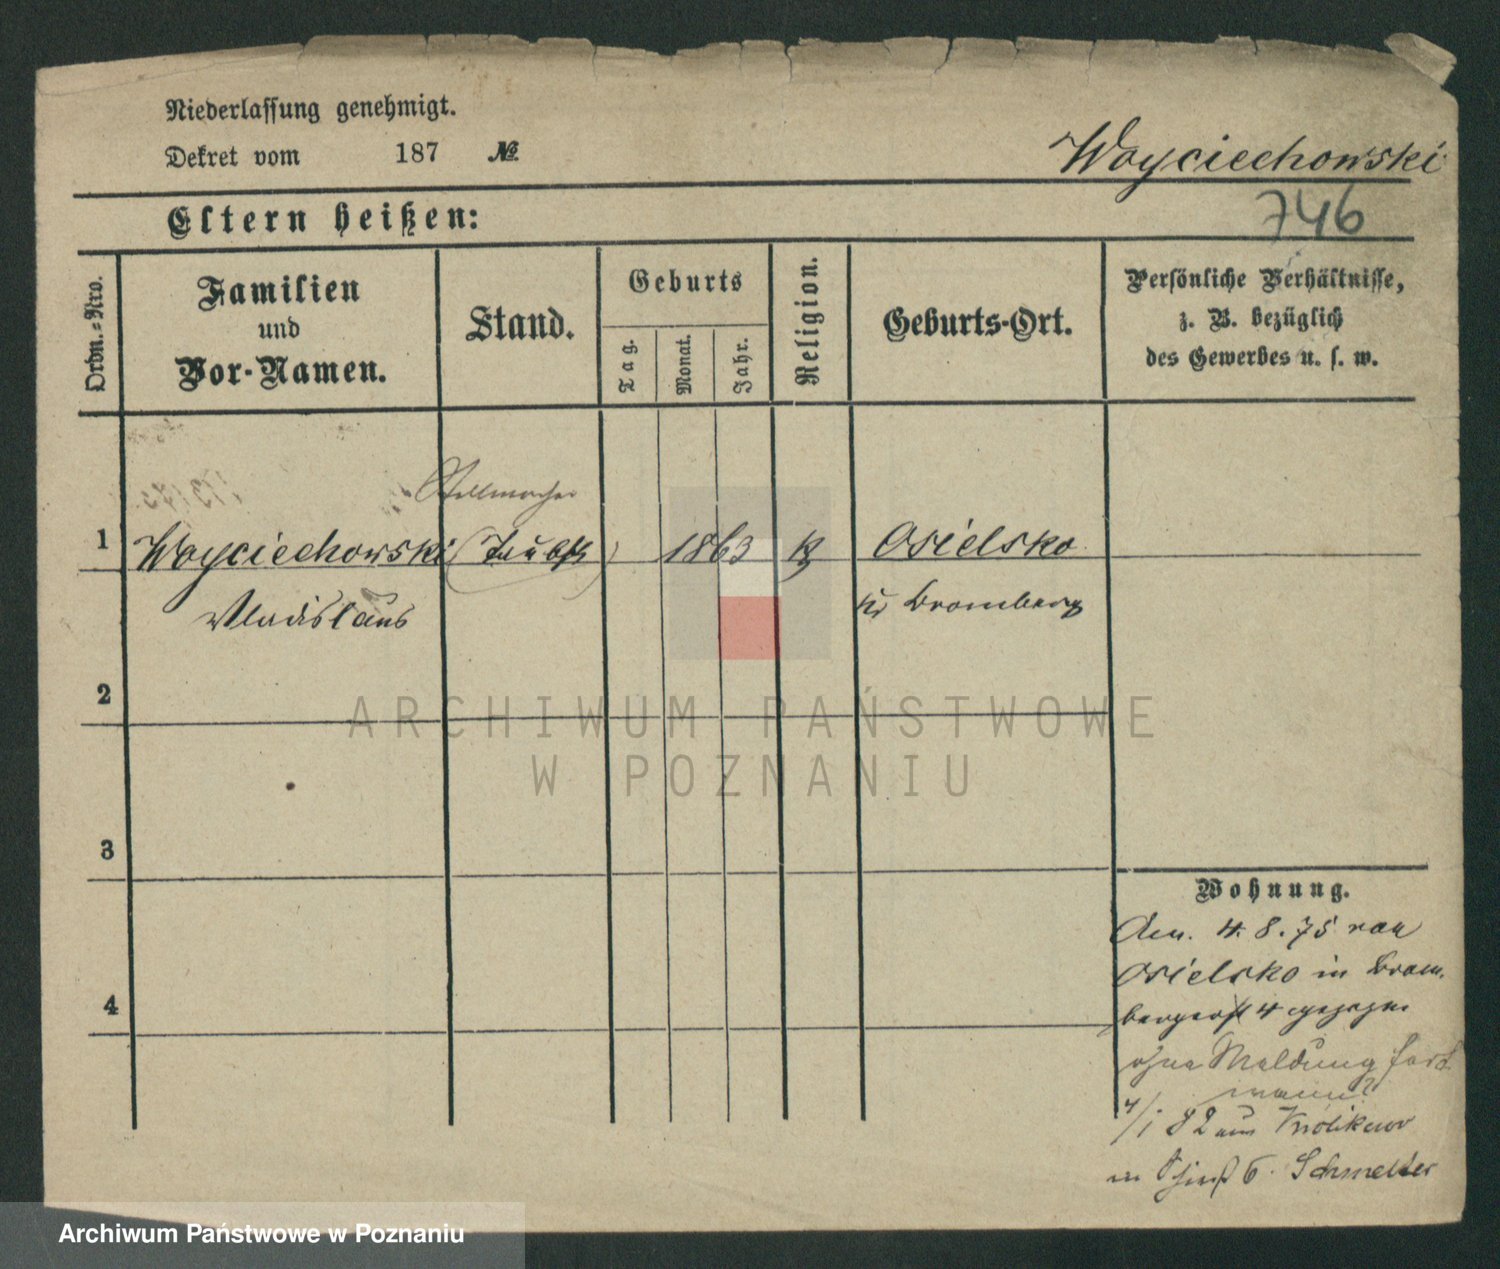 Niederlassung genehmigt.
Dekret vom 187 №
Woyciechowski
746
Eltern heißen:
Ordn.-Nro.
Familien
und
Vor-Namen.
Stand.
Geburts
Tag.
Monat.
Jahr.
Religion.
Geburts-Ort.
Persönliche Verhältnisse,
z. B. bezüglich
des Gewerbes u. s. w.
Stellmacher
1 Woyciechowski 1863 k Osielsko
Vladislaus Kr Bromberg
2
3
4
Wohnung.
Den 4. 8. 75 von
Osielsko in Brom-
bergerst 4 gezogen
ohne Meldung fort
wann?
4/1 82 aus
in 6. Schmelzer
ARCHIWUM PAŃSTWOWE
W POZNANIU
Archiwum Państwowe w Poznaniu